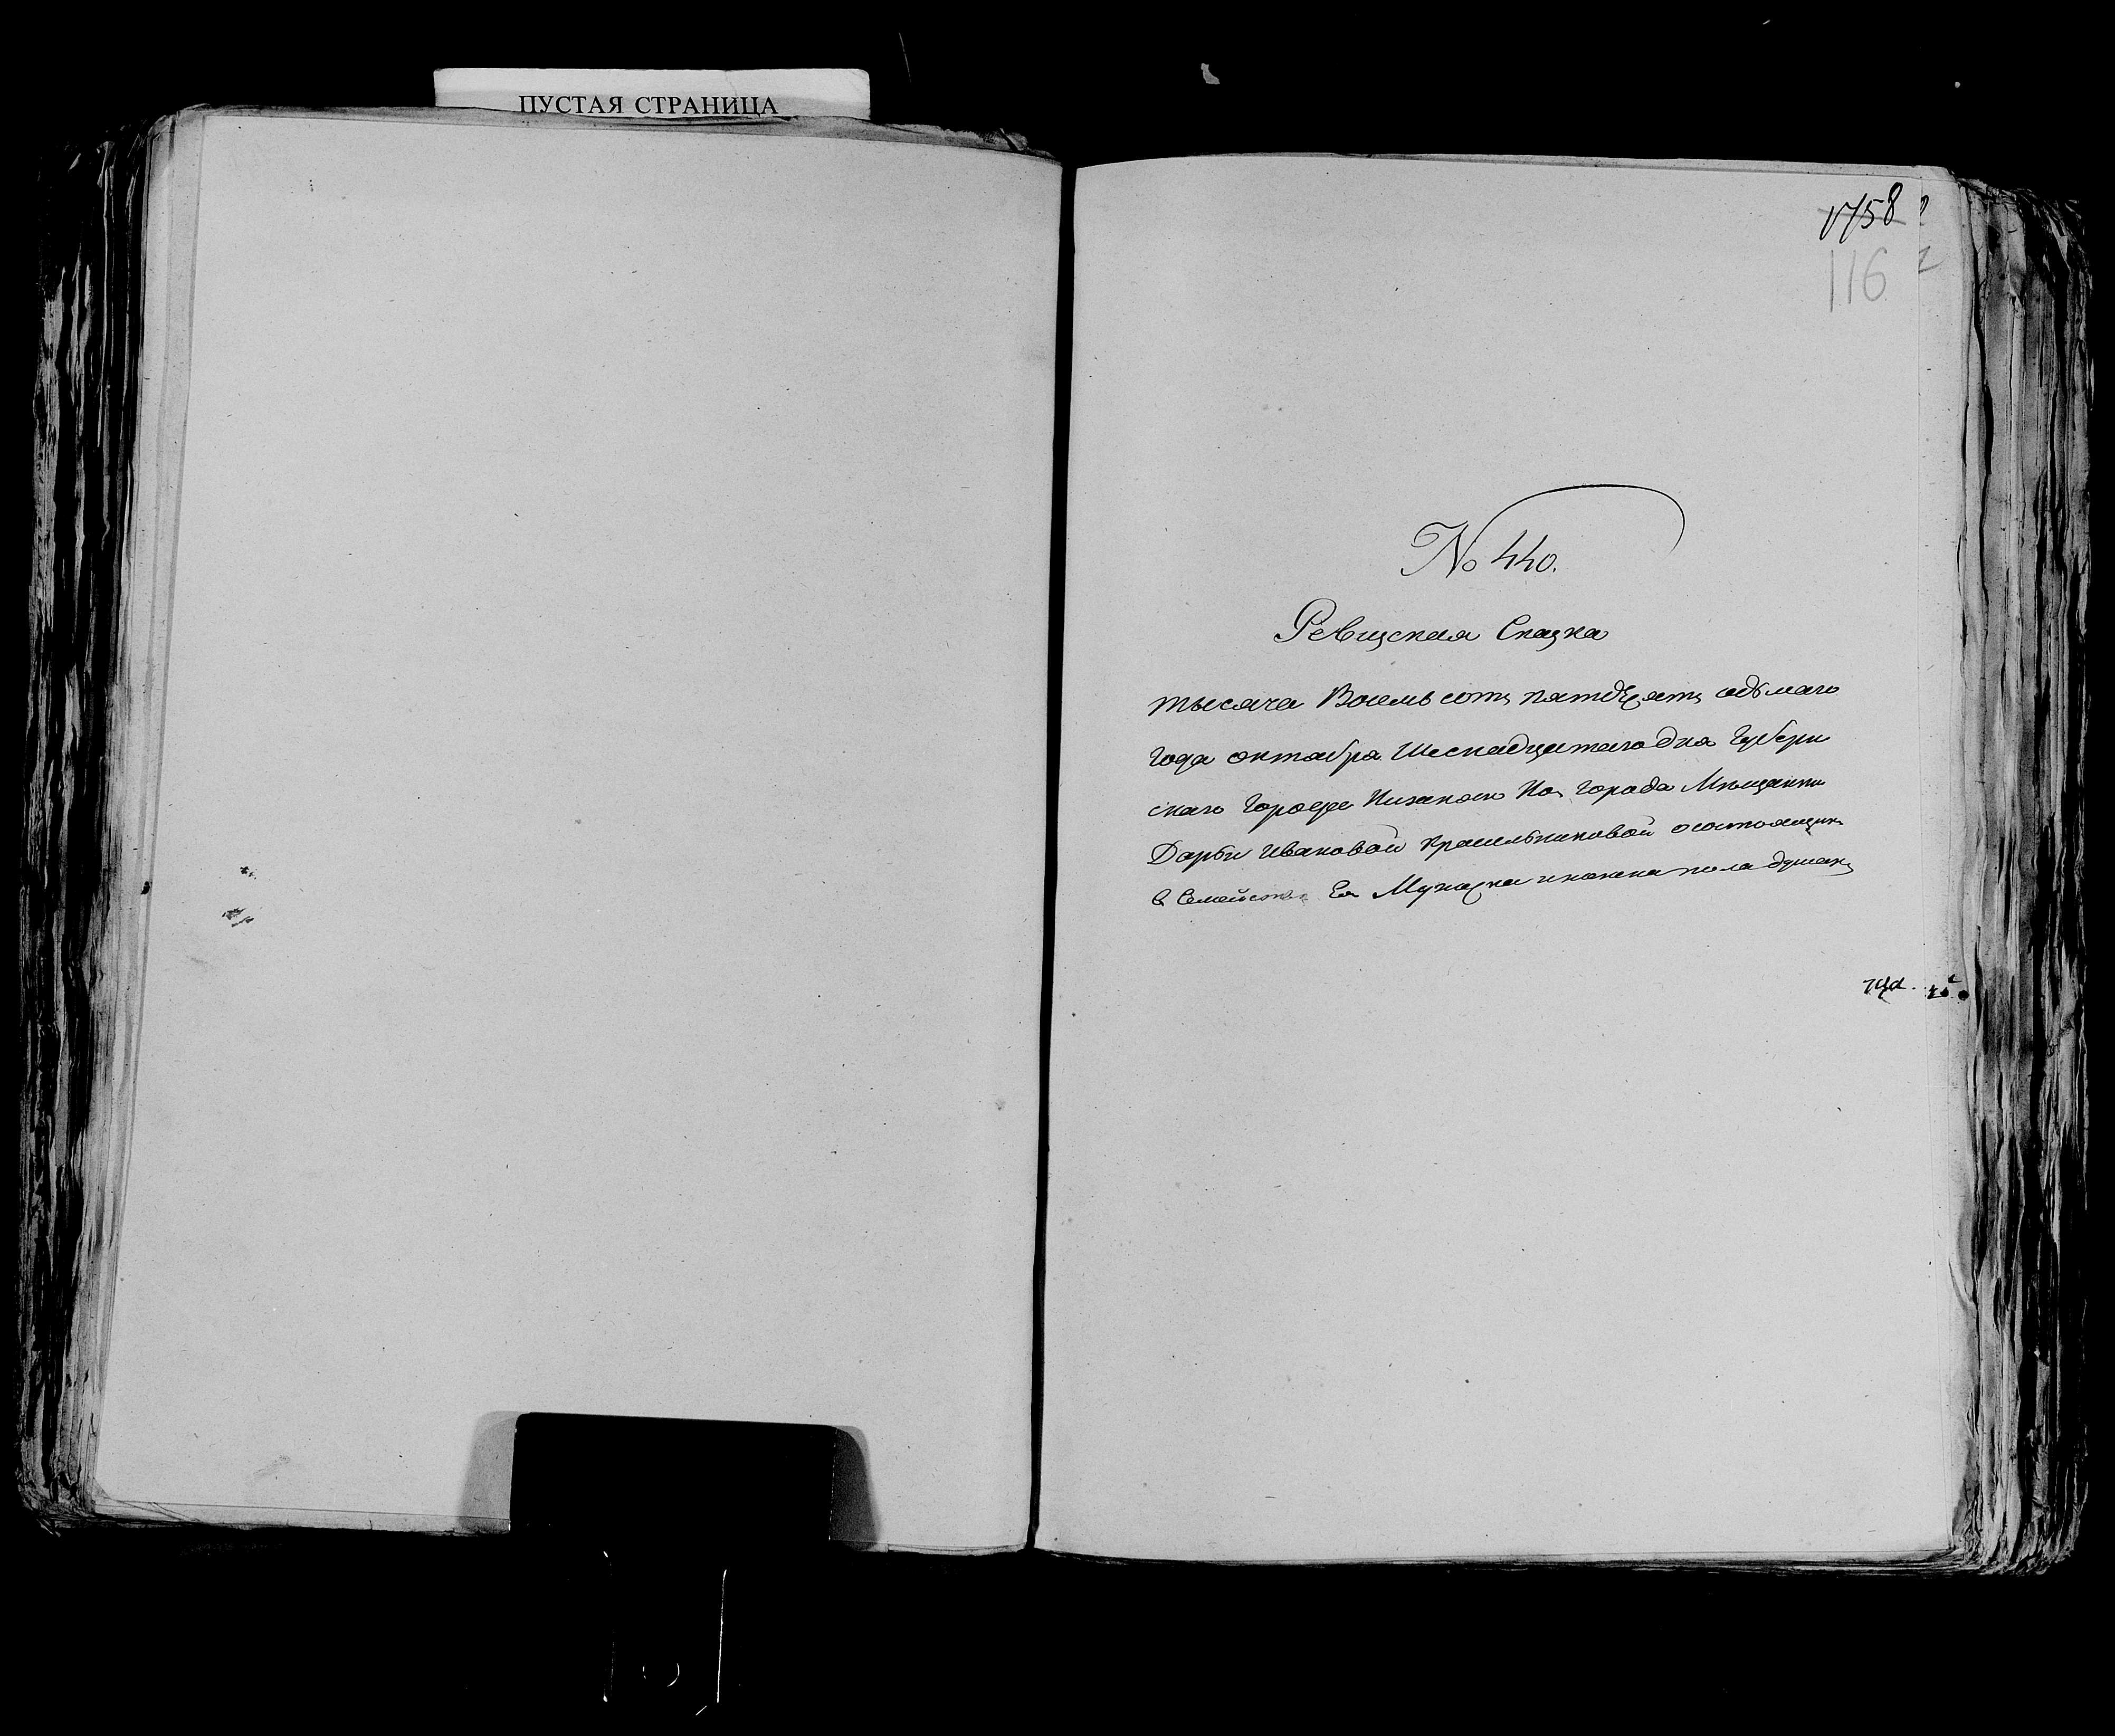 ПУСТАЯ СТРАНИЦА
1758
116
№ 440.
Ревизская Сказка
тысяча Восемь сотъ пятдесятъ седьмаго
года октября Шеснадцатаго дня Губерн
скаго города Нижняго Нов города Мещанки
Дарьи Ивановой Красильниковой о состоящихъ
в Семействе Ея Мужеска и женска пола душахъ